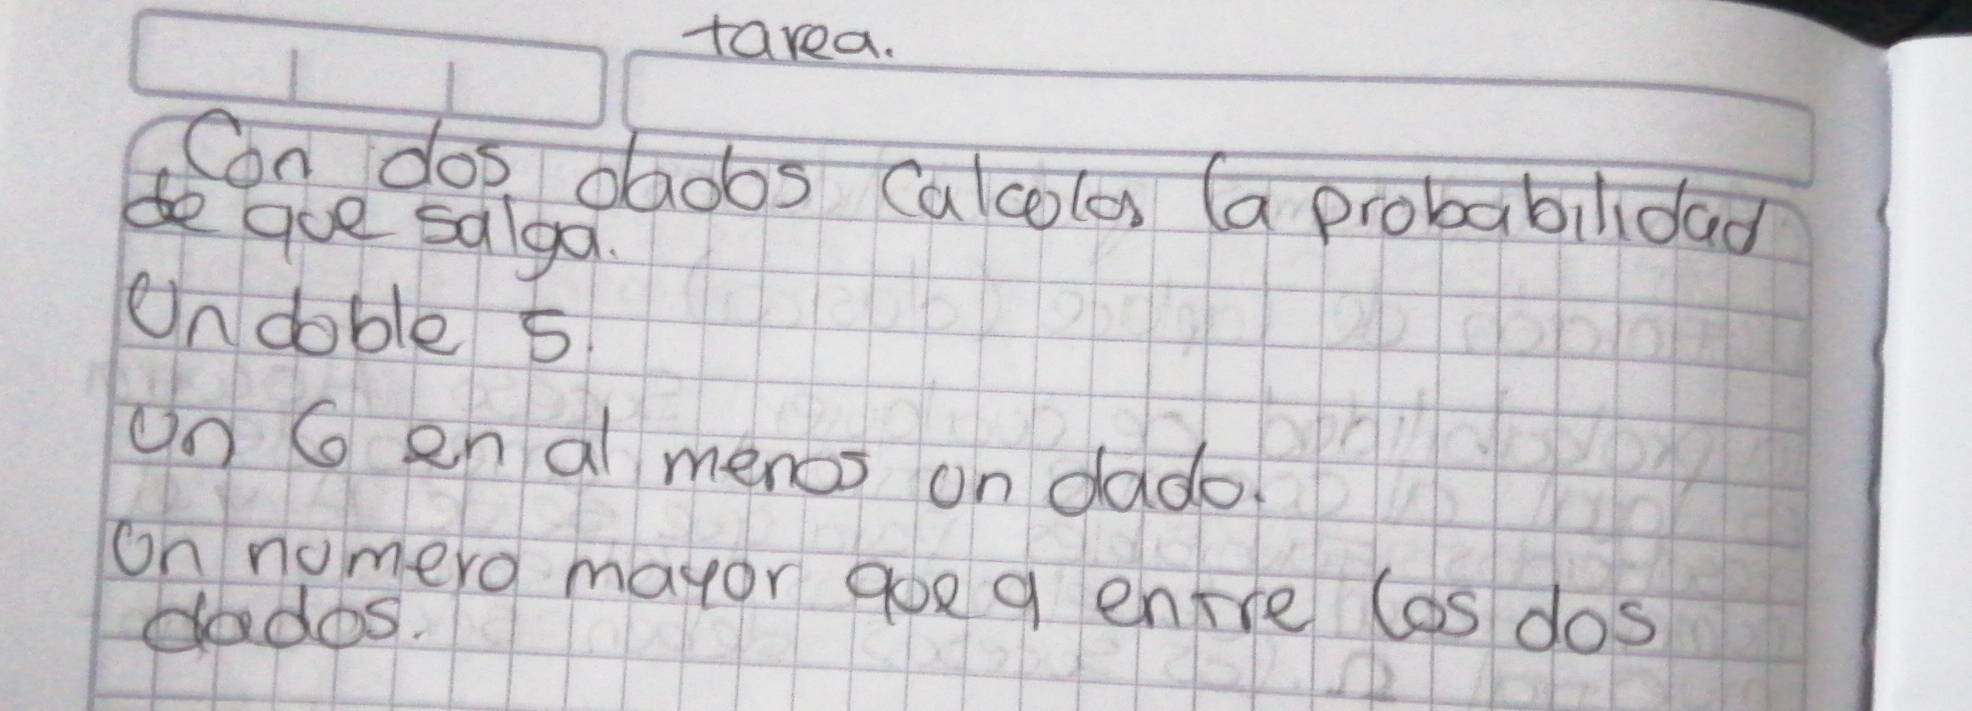 tarea.
Con dos dados Calcolos la probabilidad
de que salga.
Un doble 5.
un 6 en al menos un dado.
Un numero mayor que 9 entre los dos
dados.